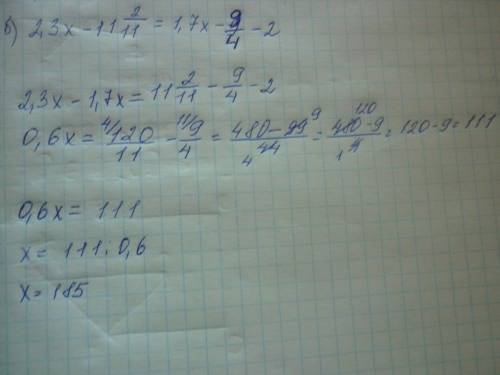 б) 2,3x - 11 2/11 = 1,7x - 9/4 - 2
2,3x - 1,7x = 11 2/11 - 9/4 - 2
0,6x = 4/ 120/11 - 11/ 9/4 = 480 - 99 9/4 44 = 120 480 - 9/1 4 = 120 - 9 = 111
0,6x = 111
x = 111 : 0,6
x = 185